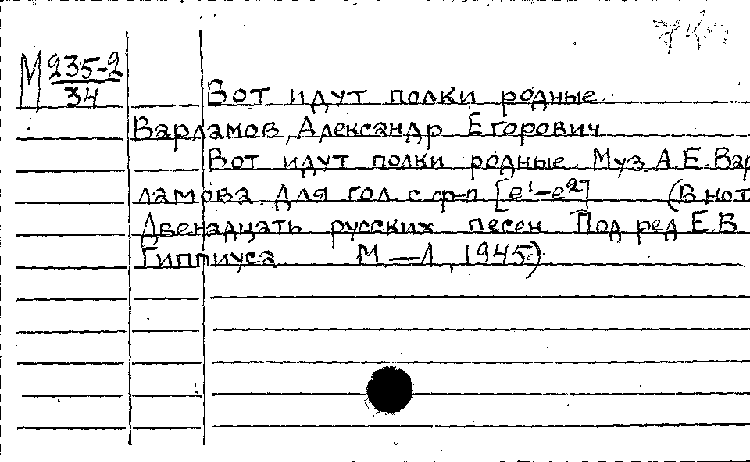 М 235-2
34
Вот идут полки родные.
Варламов, Александр Егорович
Вот идут полки родные. Муз. А.Е. Вар
ламова. Для гол. с ф-п. [e¹-e²] (В нот
Двенадцать русских песен. Под ред Е.В
Гиппиуса М.—Л., 1945)